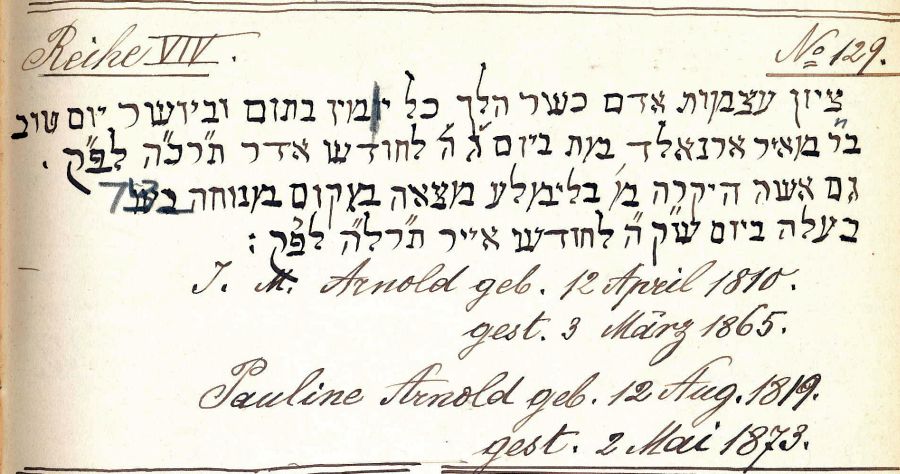 Reihe VIV. No 129.
ציון עצמות אדם כשר הלך כל ימיו בתום וביושר יום טוב
בר מאיר ארנאלד במת ביום ג' ה' לחודש אדר תרכ"ה לפ"ק .
גם אשה היקרה מ' בלימלע מצאה במקום מנוחה
בעלה ביום עש"ק ה' לחודש אייר תרל"ה לפ"ק :
J. M. Arnold geb. 12 April 1810.
gest. 3 März 1865.
Pauline Arnold geb. 12 Aug. 1819.
gest. 2 Mai 1873.